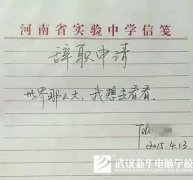 河南省实验中学信笺
辞职申请
世界那么大，我想去看看。
2015.4.13
武汉新华电脑学校